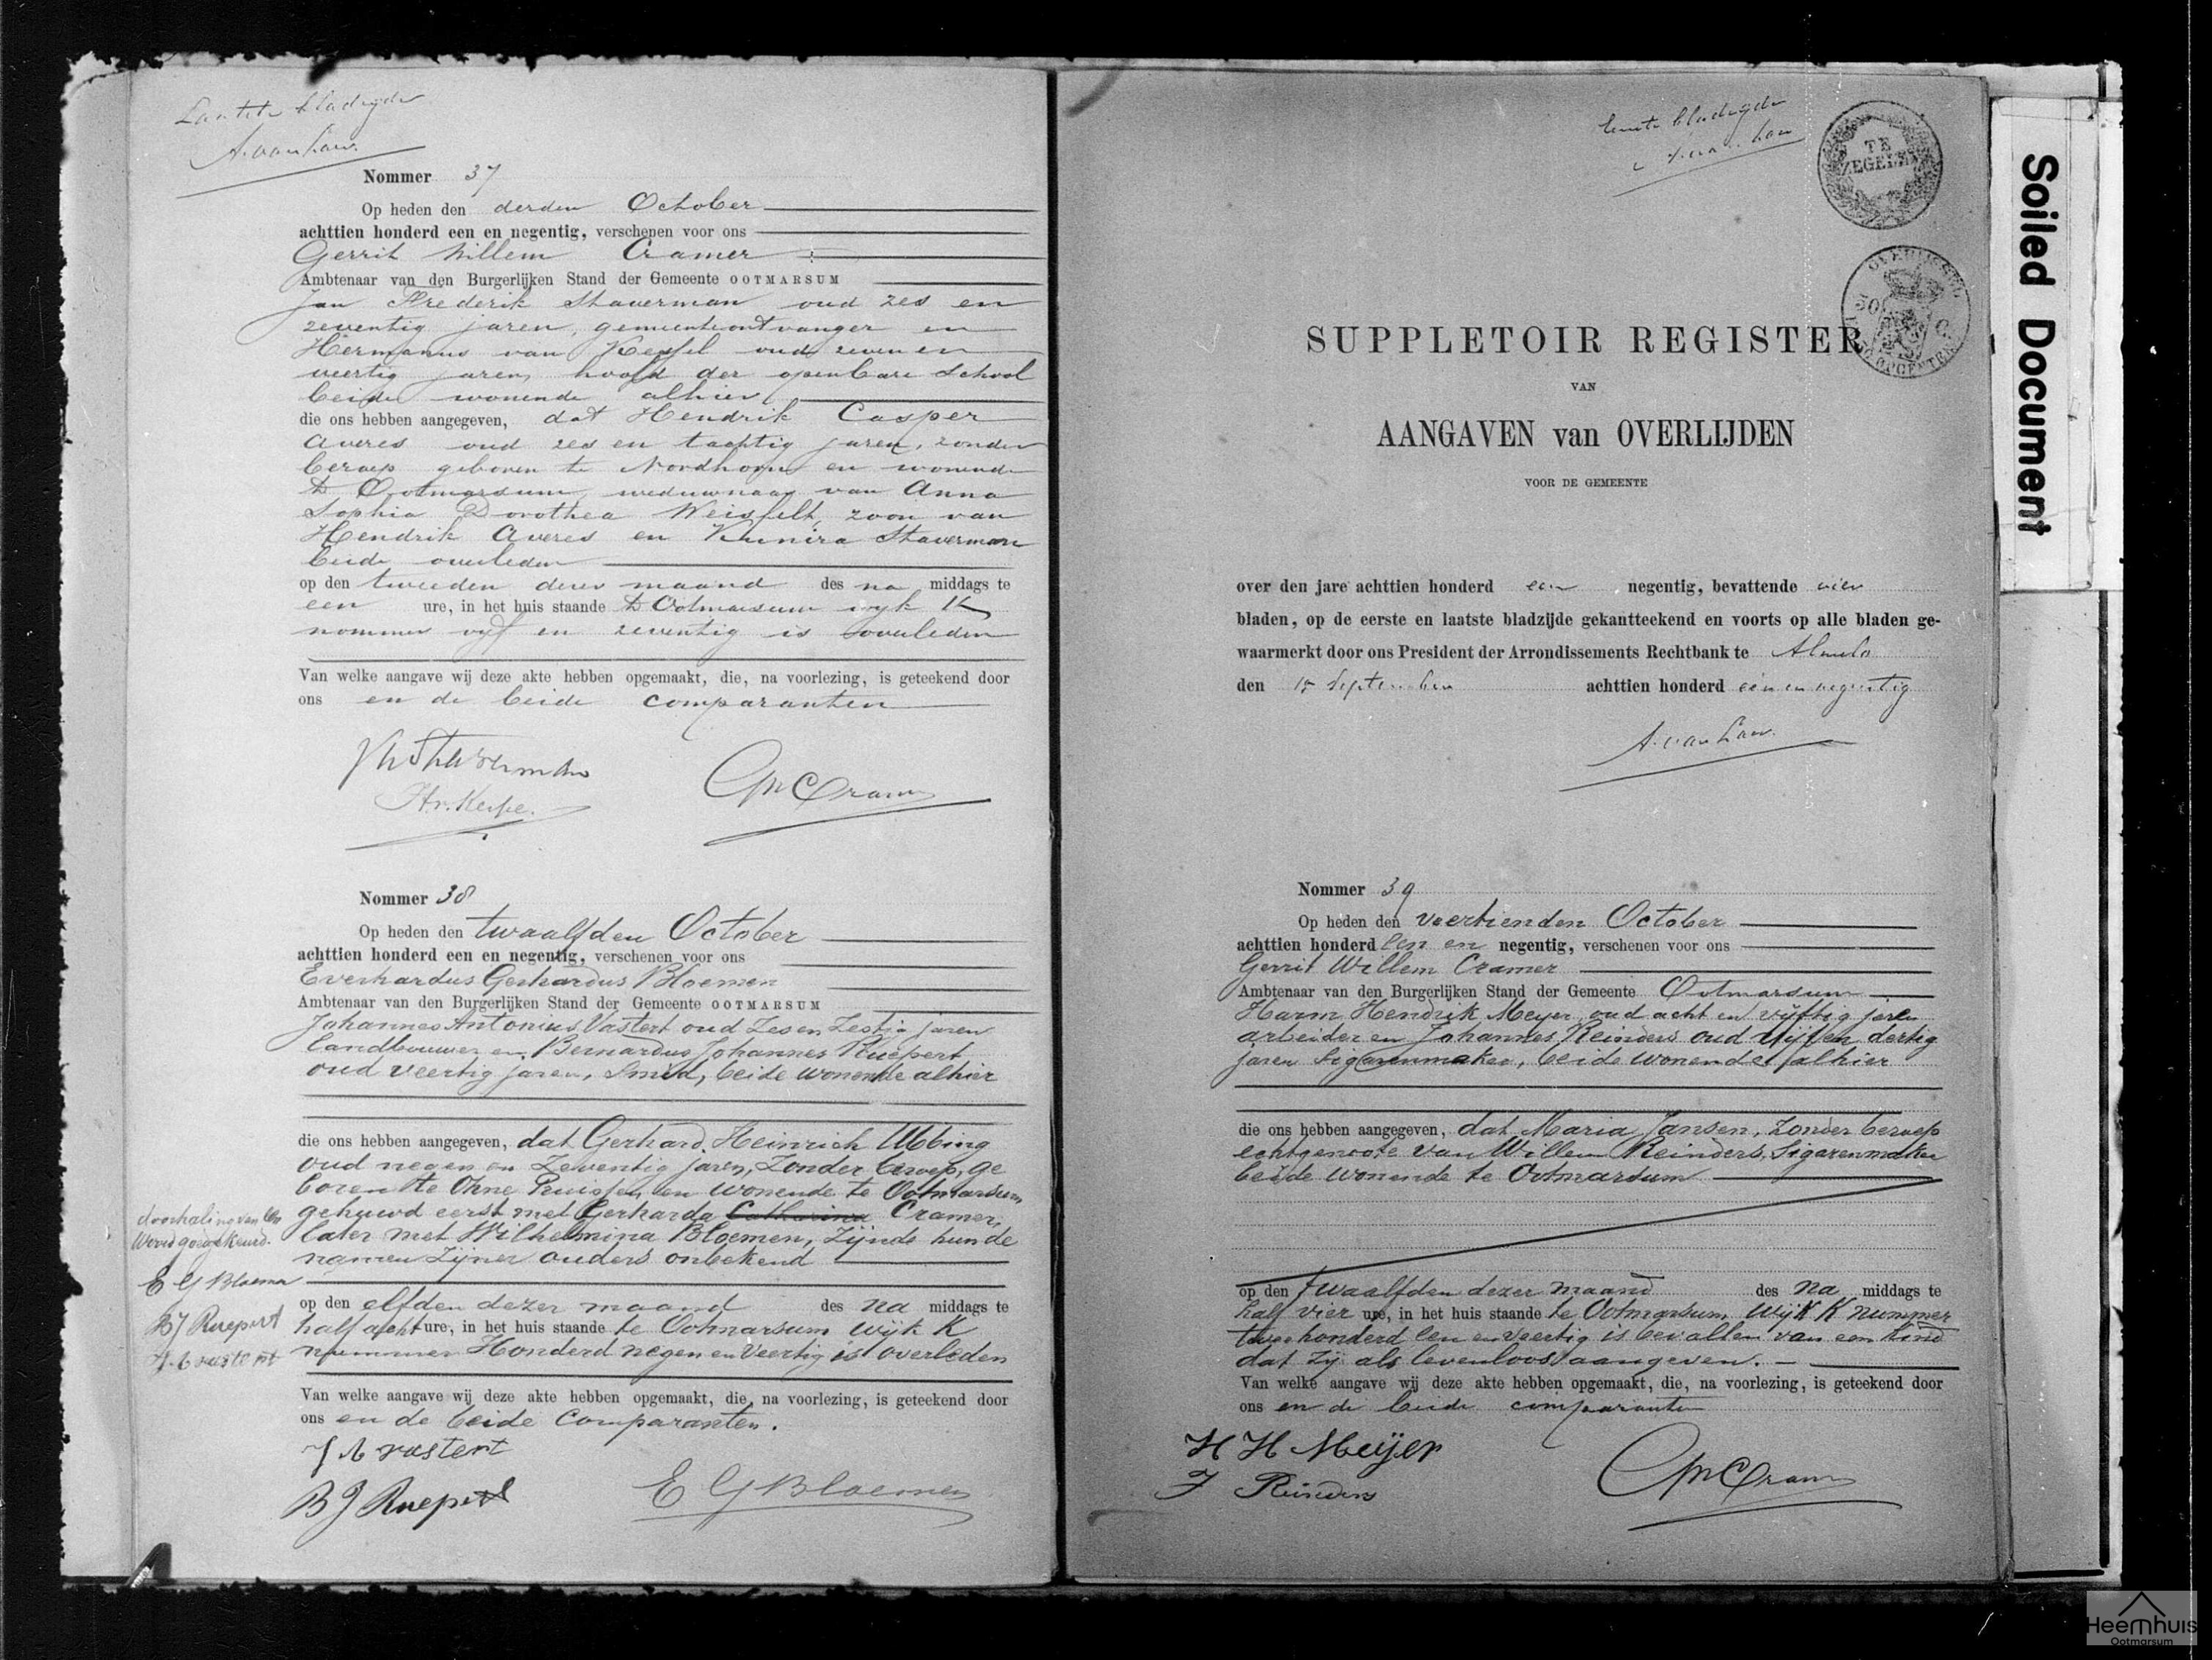 Laatste bladzijde
A. van Laer.
Nommer 37
Op heden den derden October
achttien honderd een en negentig, verschenen voor ons
Gerrit Willem Cramer
Ambtenaar van den Burgerlijken Stand der Gemeente OOTMARSUM
Jan Frederik Staverman oud zes en
zeventig jaren, gemeenteontvanger en
Hermannus van Kessel oud zeven en
veertig jaren, hoofd der openbare School
beide wonende alhier
die ons hebben aangegeven, dat Hendrik Casper
Averes oud zes en tachtig jaren, zonder
beroep geboren te Nordhorn en wonende
te Ootmarsum, weduwnaar van Anna
Sophia Dorothea zoon van
Hendrik Averes en Kunira Staverman
beide overleden
op den tweeden dezer maand des na middags te
een ure, in het huis staande te Ootmarsum wijk K
nommer vijf en zeventig is overleden
Van welke aangave wij deze akte hebben opgemaakt, die, na voorlezing, is geteekend door
ons en de beide comparanten
Staverman
GWCramer
Nommer 38
Op heden den twaalfden October
achttien honderd een en negentig, verschenen voor ons
Everhardus Gerhardus Bloemen
Ambtenaar van den Burgerlijken Stand der Gemeente OOTMARSUM
Johannes Antonius Vastert oud Zes en Zestig jaren
landbouwer en Bernardus Johannes Ruepert
oud veertig jaren, Smid, beide wonende alhier
die ons hebben aangegeven, dat Gerhard Heinrich Ubbing
oud negen en Zeventig jaren, Zonder beroep, ge
boren te Ohne Pruissen, en wonende te Ootmarsum
gehuwd eerst met Gerharda Catharina Cramer,
later met Wilhelmina Bloemen, Zijnde hun de
namen Zijner ouders onbekend
doorhaling van één
Woord goedgekeurd.
E G Bloemen
BJ Ruepert
J. A vastert
op den elfden dezer maand des na middags te
half acht ure, in het huis staande te Ootmarsum wijk K
nummer Honderd negen en Veertig is overleden
Van welke aangave wij deze akte hebben opgemaakt, die, na voorlezing, is geteekend door
ons en de beide Comparanten.
J A vastert
B J Ruepert
E G Bloemen
Eerste bladzijde
A. van Laer
TE ZEGELEN
OVERIJSSEL
50 C.
OPCENTEN
SUPPLETOIR REGISTER
VAN
AANGAVEN van OVERLIJDEN
VOOR DE GEMEENTE
over den jare achttien honderd een negentig, bevattende vier
bladen, op de eerste en laatste bladzijde gekantteekend en voorts op alle bladen ge-
waarmerkt door ons President der Arrondissements Rechtbank te Almelo
den 15 September achttien honderd een en negentig
A. van Laer.
Nommer 39
Op heden den veertienden October
achttien honderd Een en negentig, verschenen voor ons
Gerrit Willem Cramer
Ambtenaar van den Burgerlijken Stand der Gemeente Ootmarsum
Harm Hendrik Meyer oud acht en vijftig jaren
arbeider en Johannes Reinders oud Vijf en dertig
jaren Sigarenmaker, beide wonende alhier
die ons hebben aangegeven, dat Maria Jansen, Zonder beroep
echtgenoote van Willem Reinders, Sigarenmaker
beide wonende te Ootmarsum
op den twaalfden dezer maand des na middags te
half vier ure, in het huis staande te Ootmarsum wijk K nummer
twee honderd Een en veertig is bevallen van een Kind
dat zij als levenloos aangeven.
Van welke aangave wij deze akte hebben opgemaakt, die, na voorlezing, is geteekend door
ons en de beide comparanten
H H Meijer
J Reinders
GWCramer
Soiled Document
Heemhuis
Ootmarsum